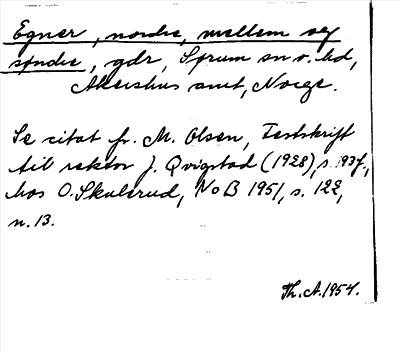 Egner, nordre, mellem og
søndre, gdr, Sørum sn o. hd,
Akershus amt, Norge.
Se citat fr. M. Olsen, Festskrift
til rektor J. Qvigstad (1928), s. 193 f,
hos O. Skulerud, NoB 1951, s. 122,
n. 13.
Th. A. 1954.